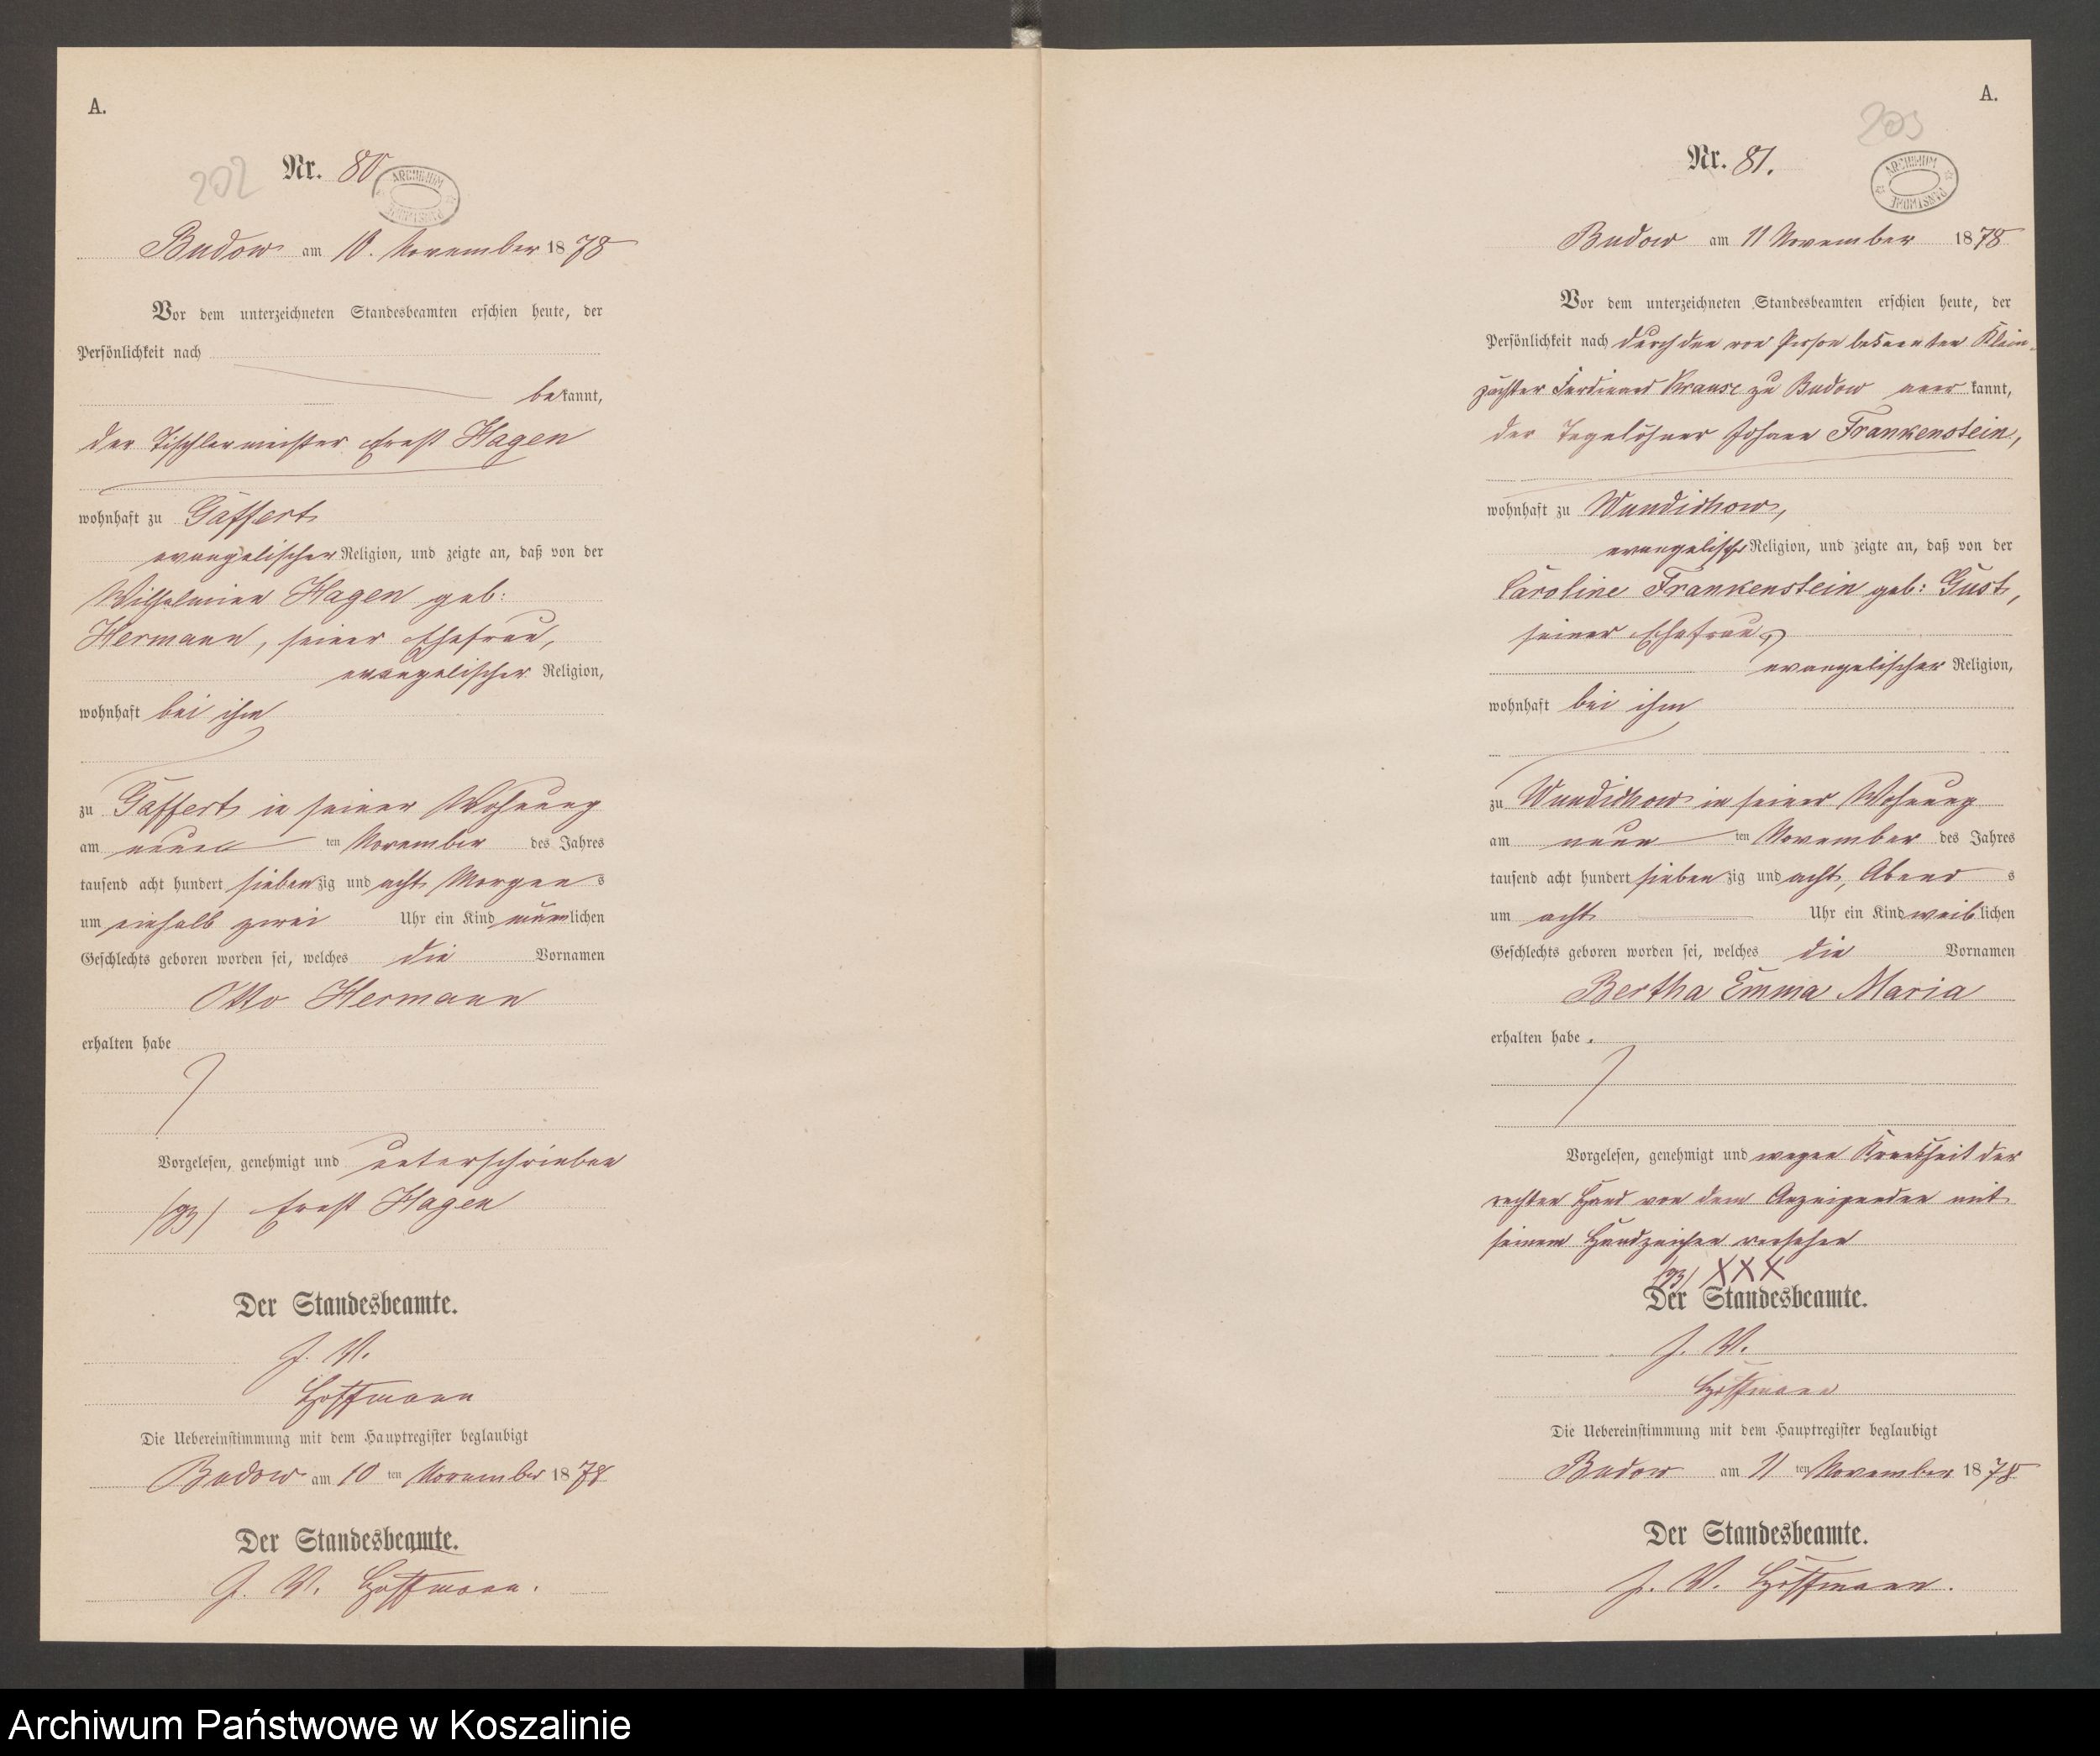 A.
202
Nr. 80
ARCHIWUM PAŃSTWOWE
Budow am 10. November 1878
Vor dem unterzeichneten Standesbeamten erschien heute, der
Persönlichkeit nach
bekannt,
der Tischlermeister Ernst Hagen
wohnhaft zu Gaffert
evangelischer Religion, und zeigte an, daß von der
Wilhelmine Hagen geb:
Hermann, seiner Ehefrau,
evangelischer Religion,
wohnhaft bei ihm
zu Gaffert in seiner Wohnung
am neun ten November des Jahres
tausend acht hundert siebenzig und acht Morgens
um einhalb zwei Uhr ein Kind männlichen
Geschlechts geboren worden sei, welches die Vornamen
Otto Hermann
erhalten habe
Vorgelesen, genehmigt und unterschrieben
/gz/ Ernst Hagen
Der Standesbeamte.
J. V.
Hoffmann
Die Uebereinstimmung mit dem Hauptregister beglaubigt
Budow am 10 ten November 1878
Der Standesbeamte.
J. V. Hoffmann.
A.
203
Nr. 81.
ARCHIWUM PAŃSTWOWE
Budow am 11 November 1878
Vor dem unterzeichneten Standesbeamten erschien heute, der
Persönlichkeit nach durch den von Person bekannten Klein-
pächter Ferdinand Krause zu Budow anerkannt,
der Tagelöhner Johann Frankenstein,
wohnhaft zu Wundichow,
evangelischer Religion, und zeigte an, daß von der
Caroline Frankenstein geb: Gust,
seiner Ehefrau,
evangelischer Religion,
wohnhaft bei ihm
zu Wundichow in seiner Wohnung
am neun ten November des Jahres
tausend acht hundert siebenzig und acht, Abends
um acht Uhr ein Kind weiblichen
Geschlechts geboren worden sei, welches die Vornamen
Bertha Emma Maria
erhalten habe.
Vorgelesen, genehmigt und wegen Krankheit der
rechten Hand von dem Anzeigenden mit
seinem Handzeichen versehen
/gz/ XXX
Der Standesbeamte.
J. V.
Hoffmann
Die Uebereinstimmung mit dem Hauptregister beglaubigt
Budow am 11 ten November 1878
Der Standesbeamte.
J. V. Hoffmann.
Archiwum Państwowe w Koszalinie